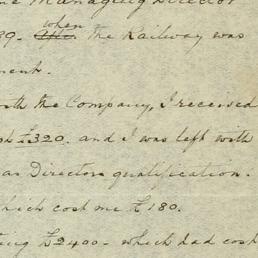 Managing Director
89. when the Railway was
ment.
with the Company, I received
£320. and I was left with
as Directors qualification.
which cost me £180.
£2400 - which had cost